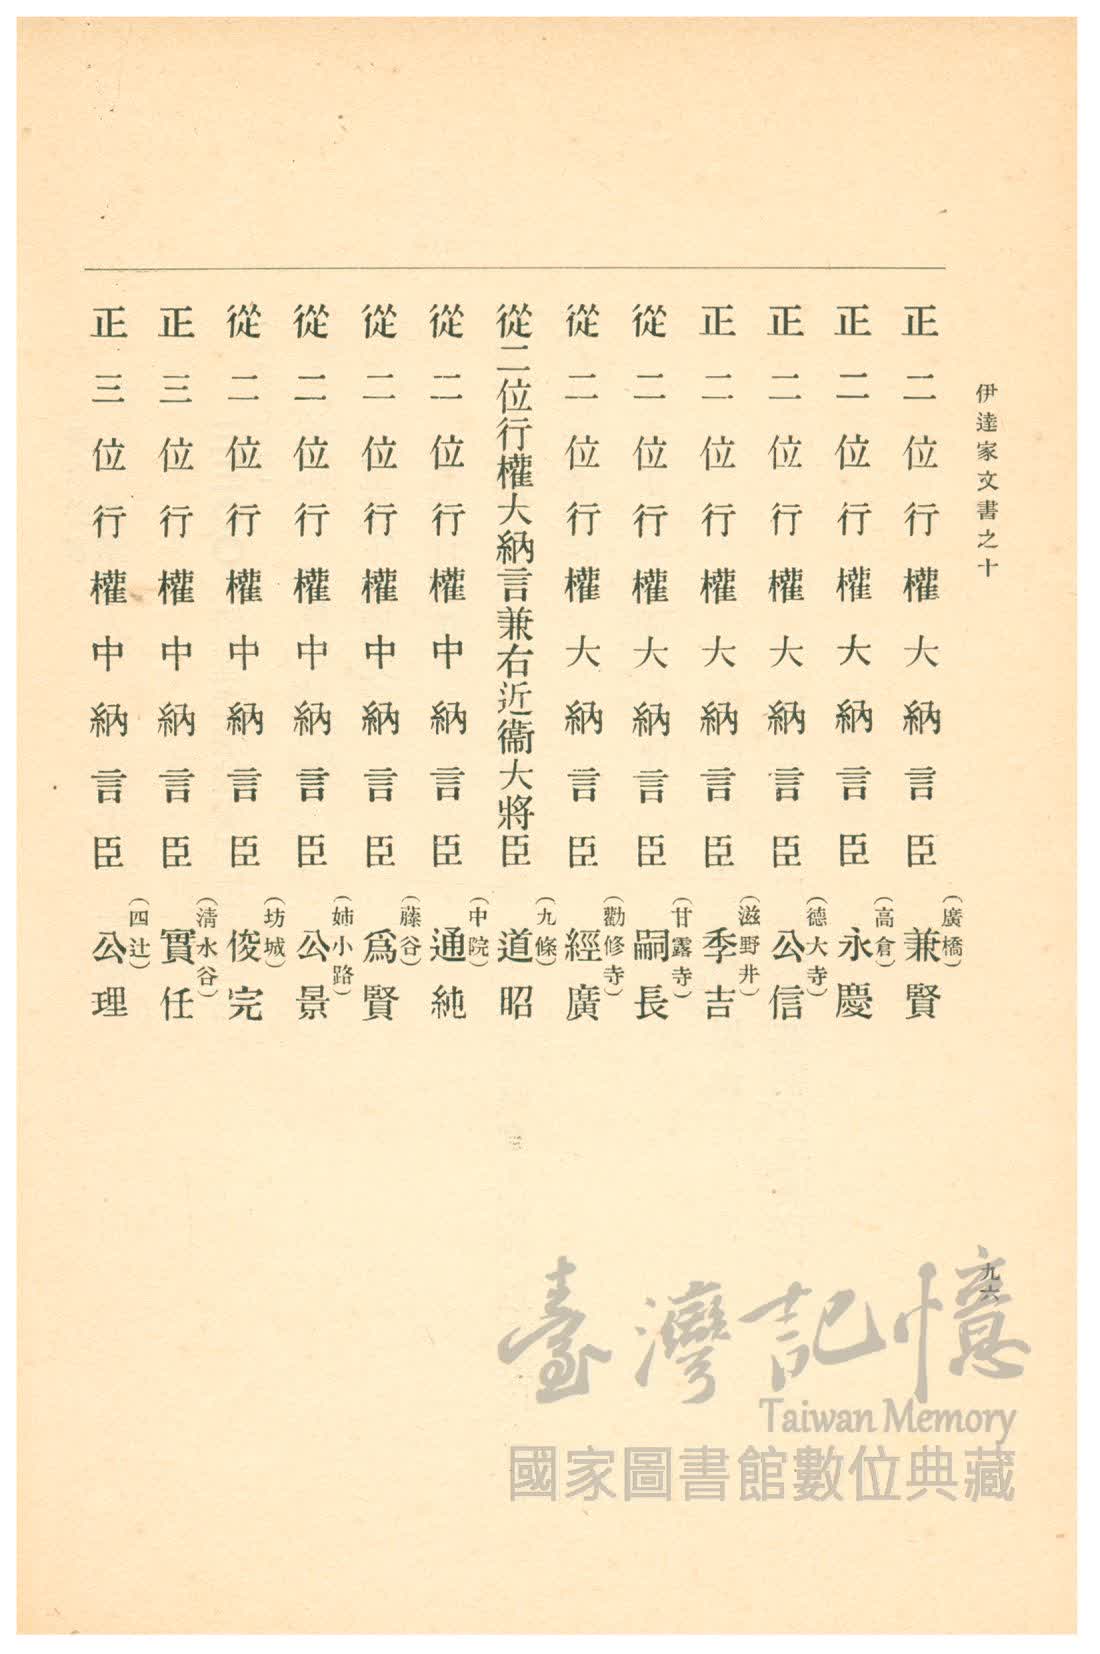 伊達家文書之十
正二位行權大納言臣(廣橋)兼賢
正二位行權大納言臣(高倉)永慶
正二位行權大納言臣(德大寺)公信
正二位行權大納言臣(滋野井)季吉
從二位行權大納言臣(甘露寺)嗣長
從二位行權大納言臣(勸修寺)經廣
從二位行權大納言兼右近衞大將臣(九條)道昭
從二位行權中納言臣(中院)通純
從二位行權中納言臣(藤谷)爲賢
從二位行權中納言臣(姉小路)公景
從二位行權中納言臣(坊城)俊完
正三位行權中納言臣(淸水谷)實任
正三位行權中納言臣(四辻)公理
九六
臺灣記憶
Taiwan Memory
國家圖書館數位典藏